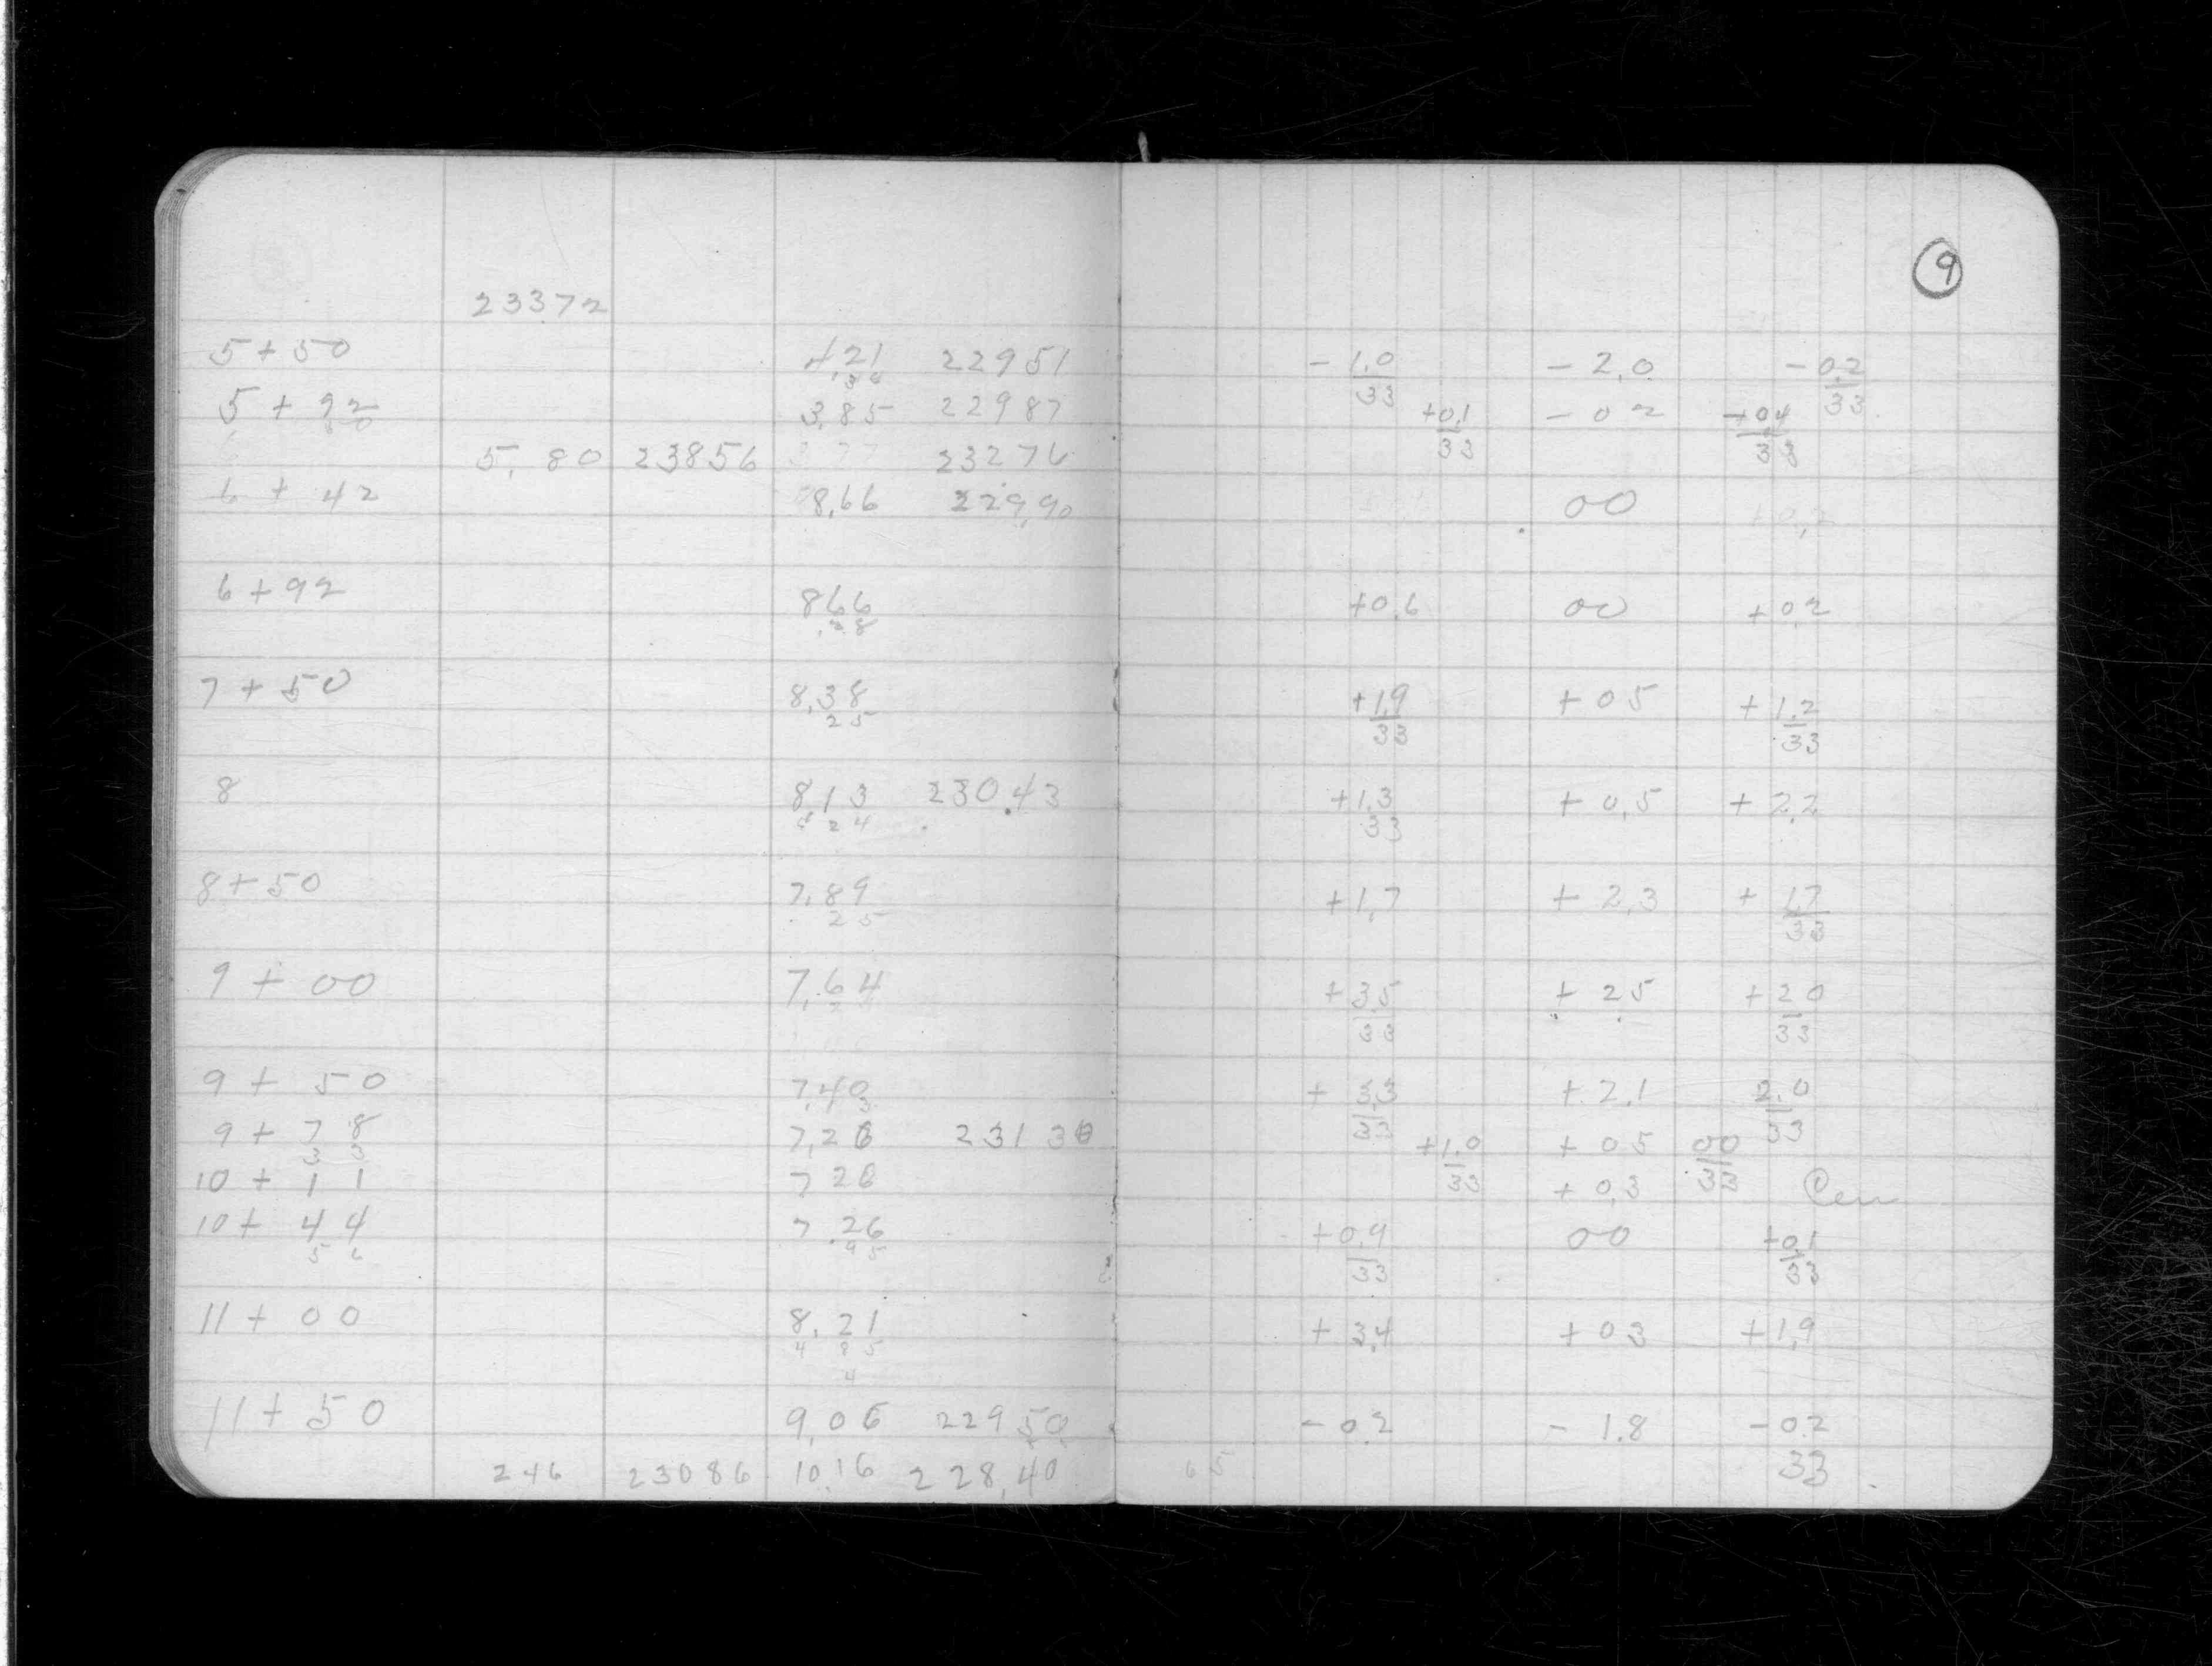 9
23372
5+50 4,21 22951 - 1,0/33 - 2,0 - 0,2/33
36
5 + 92 3,85 22987 +0,1/33 - 02 +0,4/33
5,80 23856 23276
6 + 42 8,66 229,90 00 +0,2
6+92 866 +0,6 00 +02
28
7 + 50 8,38 +1,9/33 + 05 + 1,2/33
25
8 8,13 230.43 +1,3/33 + 0,5 + 2,2
24
8+50 7,89 +1,7 + 2,3 + 1,7/33
25
9 + 00 7,64 + 3,5/33 + 25 + 20/33
9 + 50 7,40 + 3,3/33 + 2,1 2,0/33
9 + 78 7,26 23130 +1,0/33 + 05 00/33
33
10 + 11 726 + 0,3
10+ 44 7.26 +0,9/33 00 +0,1/33
56 95
11 + 00 8,21 + 3,4 + 03 +1,9
4 85
4
11 + 50 9,06 22950 - 0,2 - 1.8 - 02/33
246 23086 10,16 228,40 65